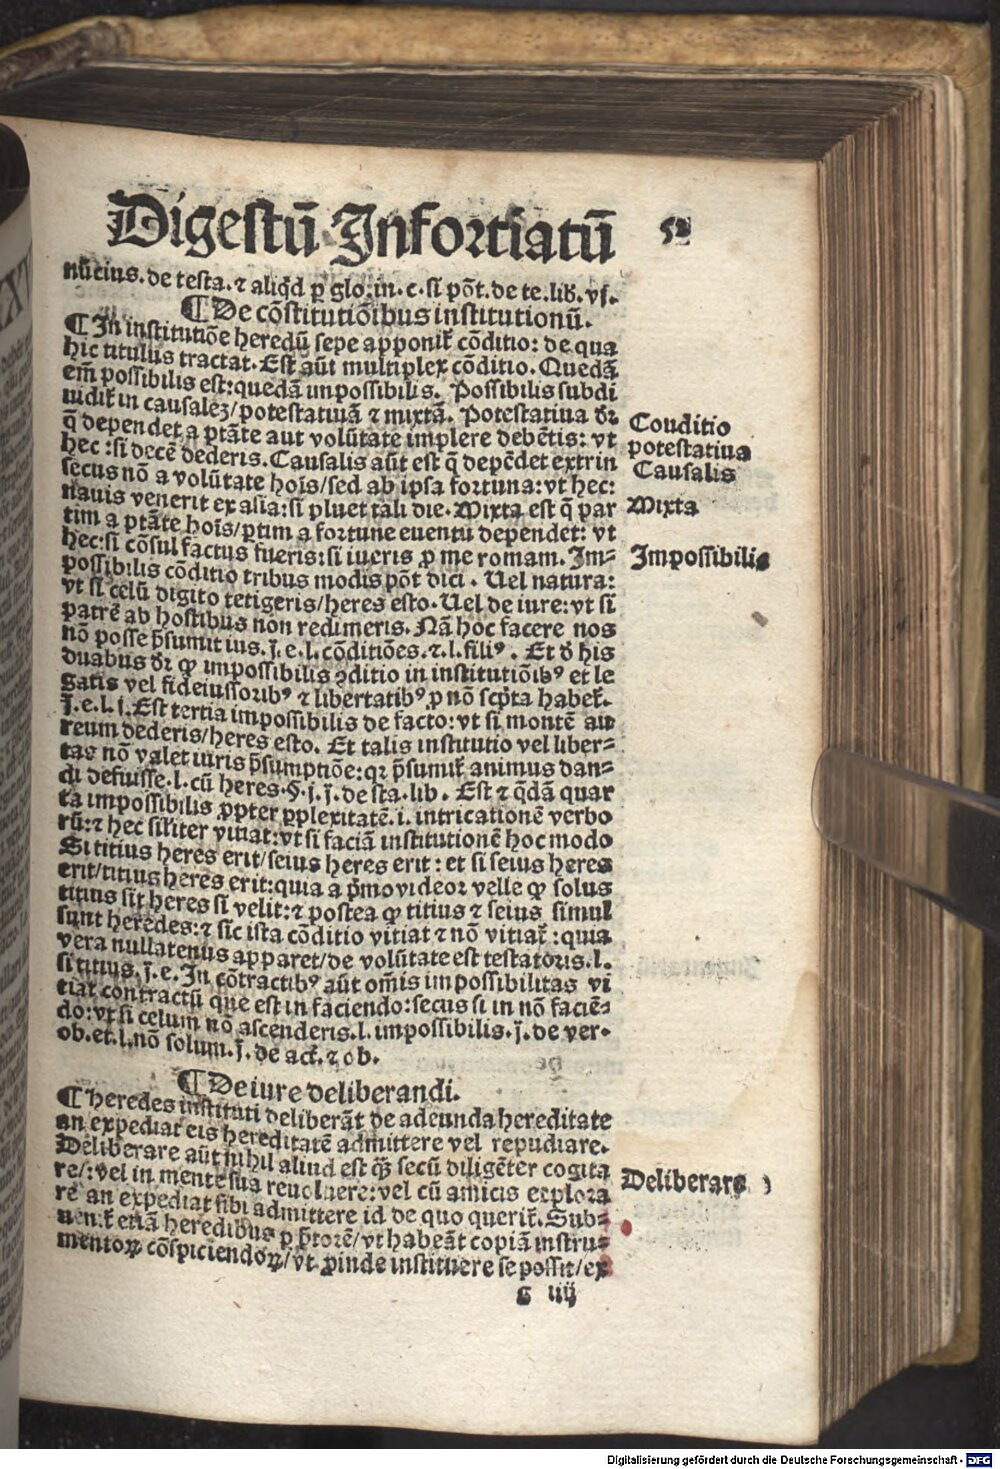 Digestū Infortiatū 52
nūcius. de testa. ⁊ aliq̄d p̱ glo. in. c. si pōt. de te. lib. vj.
¶ De cōstitutiōibus institutionū.
¶ In institutiōe heredū sepe apponit᷑ cōditio: de qua
hic titulus tractat. Est aūt multiplex cōditio. Quedā
em̄ possibilis est: quedā impossibilis. Possibilis subdi
uidit᷑ in causaleʒ / potestatiuā ⁊ mixtā. Potestatiua dr̄
q̄ dependet a ptāte aut volūtate implere debētis: vt
hec: si decē dederis. Causalis aūt est q̄ depēdet extrin
secus nō a volūtate hoīs / sed ab ipsa fortuna: vt hec:
nauis venerit ex asia: si pluet tali die. Mixta est q̄ par
tim a ptāte hoīs / ptim a fortune euentu dependet: vt
hec: si cōsul factus fueris: si iueris ꝓ me romam. Im⸗
possibilis cōditio tribus modis pōt dici. Uel natura:
vt si celū digito tetigeris / heres esto. Uel de iure: vt si
patrē ab hostibus non redimeris. Nā hoc facere nos
nō posse p̄sumit ius. j. e. l. cōditiōes. ⁊. l. filiꝰ. Et d̄ his
duabus dr̄ ꝙ impossibilis ꝯditio in institutiōibꝰ et le
gatis vel fideiussoribꝰ ⁊ libertatibꝰ ꝓ nō scpta habet᷑.
j. e. l. j. Est tertia impossibilis de facto: vt si montē au
reum dederis / heres esto. Et talis institutio vel liber⸗
tas nō valet iuris p̄sumptiōe: qꝛ p̄sumit᷑ animus dan⸗
di defuisse. l. cū heres. §. j. j. de sta. lib. Est ⁊ q̄dā quar
ta impossibilis ꝓpter ꝑplexitatē. i. intricationē verbo
rū: ⁊ hec siliter vitiat: vt si faciā institutionē hoc modo
Si titius heres erit / seius heres erit: et si seius heres
erit / titius heres erit: quia a p̄mo videor velle ꝙ solus
titius sit heres si velit: ⁊ postea ꝙ titius ⁊ seius simul
sunt heredes: ⁊ sic ista cōditio vitiat ⁊ nō vitiat᷑: quia
vera nullatenus apparet / de volūtate est testatoris. l.
si titius. j. e. In cōtractibꝰ aūt om̄is impossibilitas vi
tiat contractū que est in faciendo: secus si in nō faciē⸗
do: vt si celum nō ascenderis. l. impossibilis. j. de ver⸗
ob. et. l. nō solum. j. de act. ⁊ ob.
¶ De iure deliberandi.
¶ Heredes instituti deliberāt de adeunda hereditate
an expediat eis hereditatē admittere vel repudiare.
Deliberare aūt nihil aliud est q̄ȝ secū diligēter cogita
re /: vel in mente sua reuoluere: vel cū amicis explora
re an expediat sibi admittere id de quo querit᷑. Sub⸗
uenit᷑ etiā heredibus p̱ p̄torē / vt habeāt copiā instru⸗
mentoꝝ cōspiciendoꝝ / vt ꝓinde instituere se possit / ex
G iiij
Conditio
potestatiua
Causalis
Mixta
Impossibilis
Deliberare
Digitalisierung gefördert durch die Deutsche Forschungsgemeinschaft - DFG